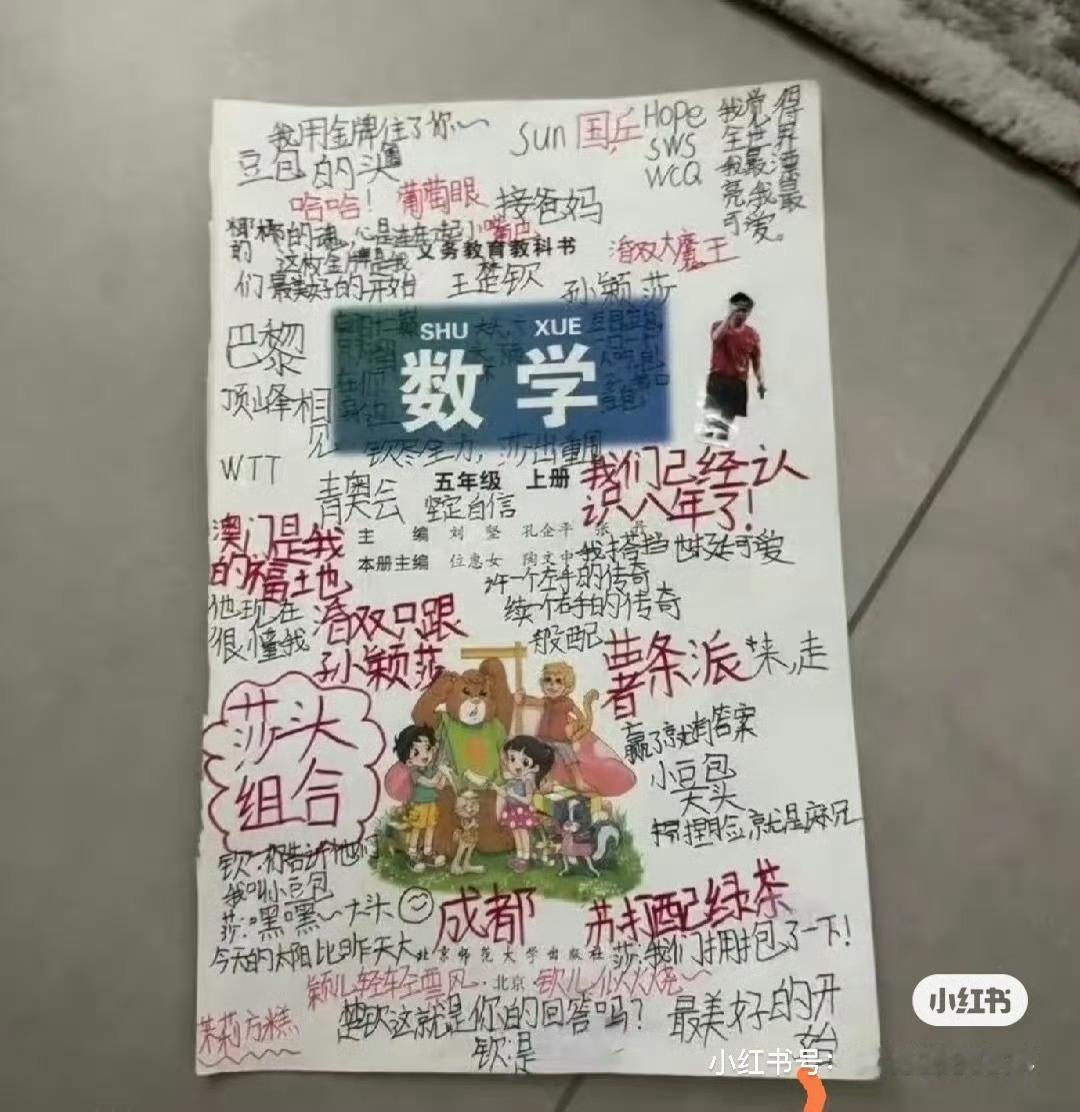 我用金牌住了你~
豆包的头
Sun 国乒
Hope
SWS
WCQ
我觉得
全世界
我最漂
亮我最
可爱。
哈哈！ 葡萄眼 接爸妈
的魂,心是连在一起 小嘴巴
的 这枚金牌是我
们最美好的开始
义务教育教科书
王楚钦
混双大魔王
孙颖莎
SHU XUE
数学
巴黎
顶峰相
见
钦尽全力,莎出重围
WTT
青奥会
五年级 上册
坚定自信
我们已经认
识八年了!
澳门是我
的福土也
主 编 刘 坚 孔企平 张 丹
本册主编 位惠女 陶文中
我搭挡也挺可爱
许一个左手的传奇
续一个右手的传奇
般配
他现在
很懂我
混双只跟
孙颖莎
薯条派
来,走
莎头
组合
赢了就判答案
小豆包
大头
捏脸就是麻兄
钦:你告诉他们
我叫小豆包
莎:嘿嘿~大头
成都
苏打配绿茶
今天的太阳比昨天大
北京师范大学出版社
莎:我们拥抱了一下!
颖儿轻轻西风
·北京·
钦儿似火烧~
茉莉方糕
楚钦这就是你的回答吗?
钦:是
最美好的开
始
小红书
小红书号: